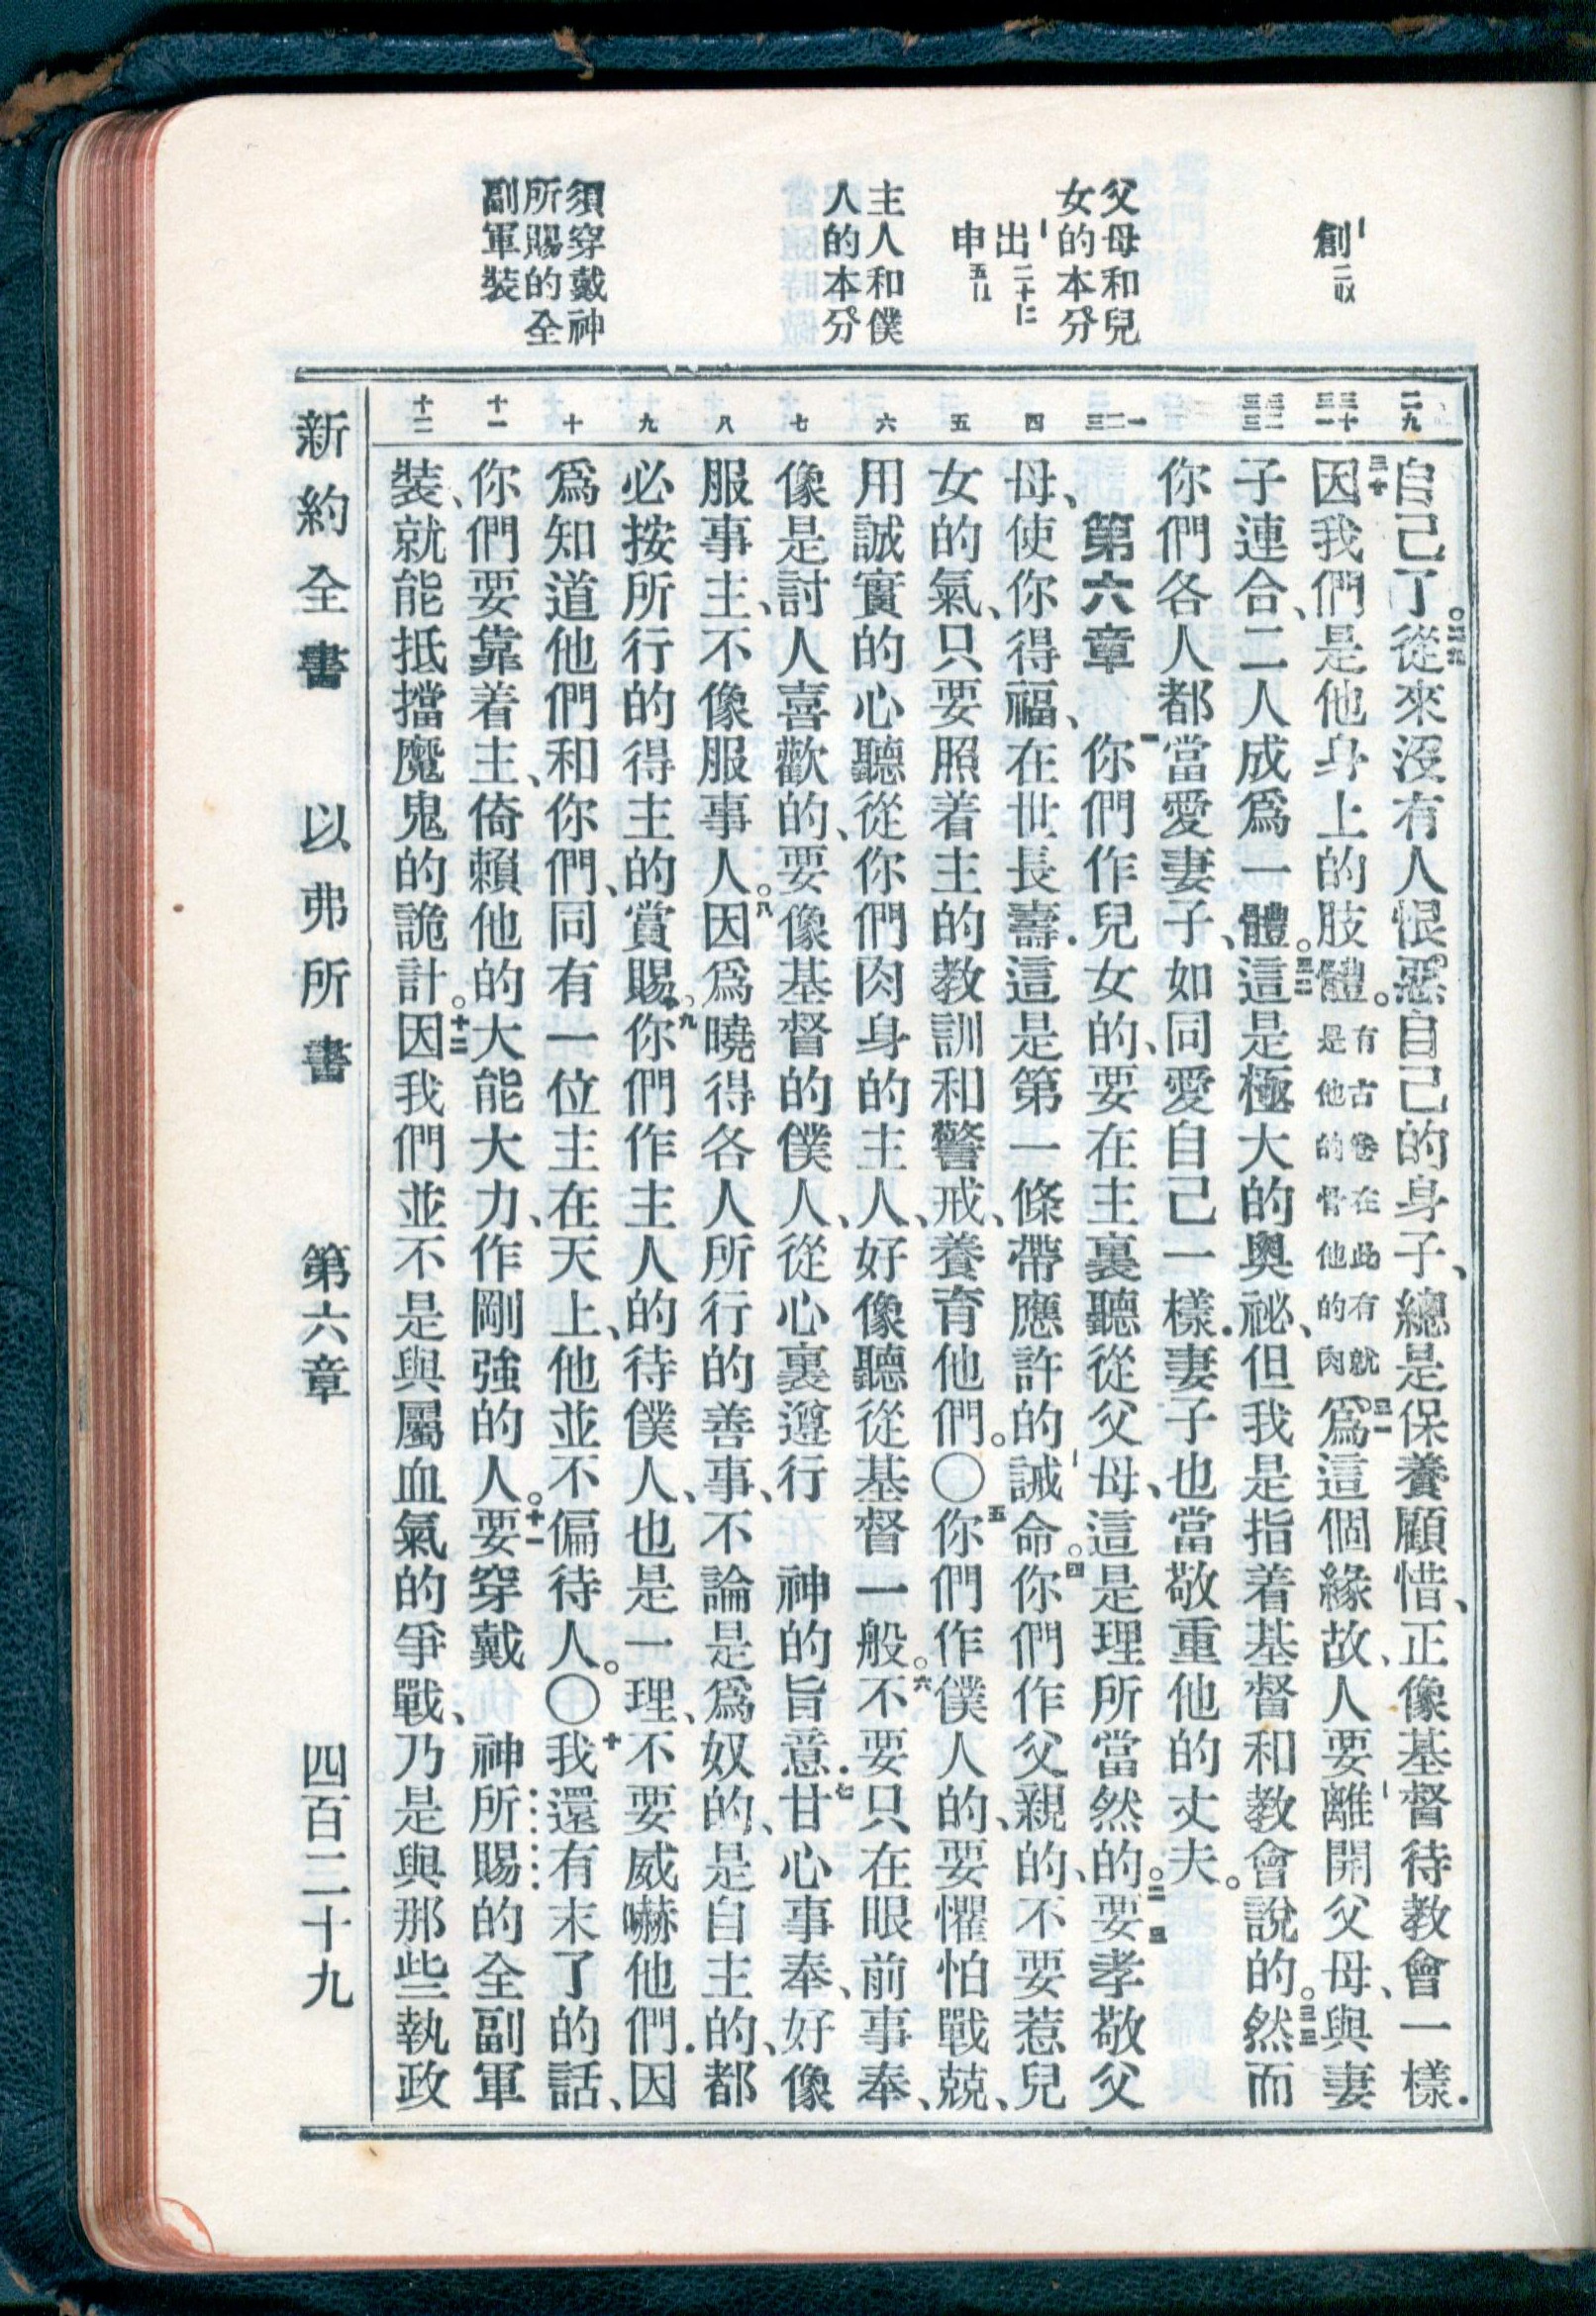 創二
父母和兒
女的本分
出二十
申五
主人和僕
人的本分
須穿戴神
所賜的全
副軍裝
二九
三十
三一
三二
三三
一
二
三
四
五
六
七
八
九
十
十一
十二
自己了。二九從來沒有人恨惡自己的身子、總是保養顧惜、正像基督待教會一樣．
三十因我們是他身上的肢體。有古卷在此有就是他的骨他的肉三一爲這個緣故、人要離開父母、與妻
子連合、二人成爲一體。三二這是極大的奧祕、但我是指着基督和教會說的。三三然而
你們各人都當愛妻子、如同愛自己一樣．妻子也當敬重他的丈夫。
第六章 一你們作兒女的、要在主裏聽從父母、這是理所當然的。二三要孝敬父
母、使你得福、在世長壽．這是第一條帶應許的誡命。四你們作父親的、不要惹兒
女的氣、只要照着主的教訓和警戒、養育他們。〇五你們作僕人的、要懼怕戰兢、
用誠實的心聽從你們肉身的主人、好像聽從基督一般。六不要只在眼前事奉、
像是討人喜歡的、要像基督的僕人、從心裏遵行 神的旨意．七甘心事奉、好像
服事主、不像服事人。八因爲曉得各人所行的善事、不論是爲奴的、是自主的、都
必按所行的得主的賞賜。九你們作主人的、待僕人、也是一理、不要威嚇他們．因
爲知道他們和你們、同有一位主在天上、他並不偏待人。〇十我還有末了的話、
你們要靠着主、倚賴他的大能大力、作剛強的人。十一要穿戴 神所賜的全副軍
裝、就能抵擋魔鬼的詭計。十二因我們並不是與屬血氣的爭戰、乃是與那些執政
新約全書 以弗所書 第六章 四百二十九